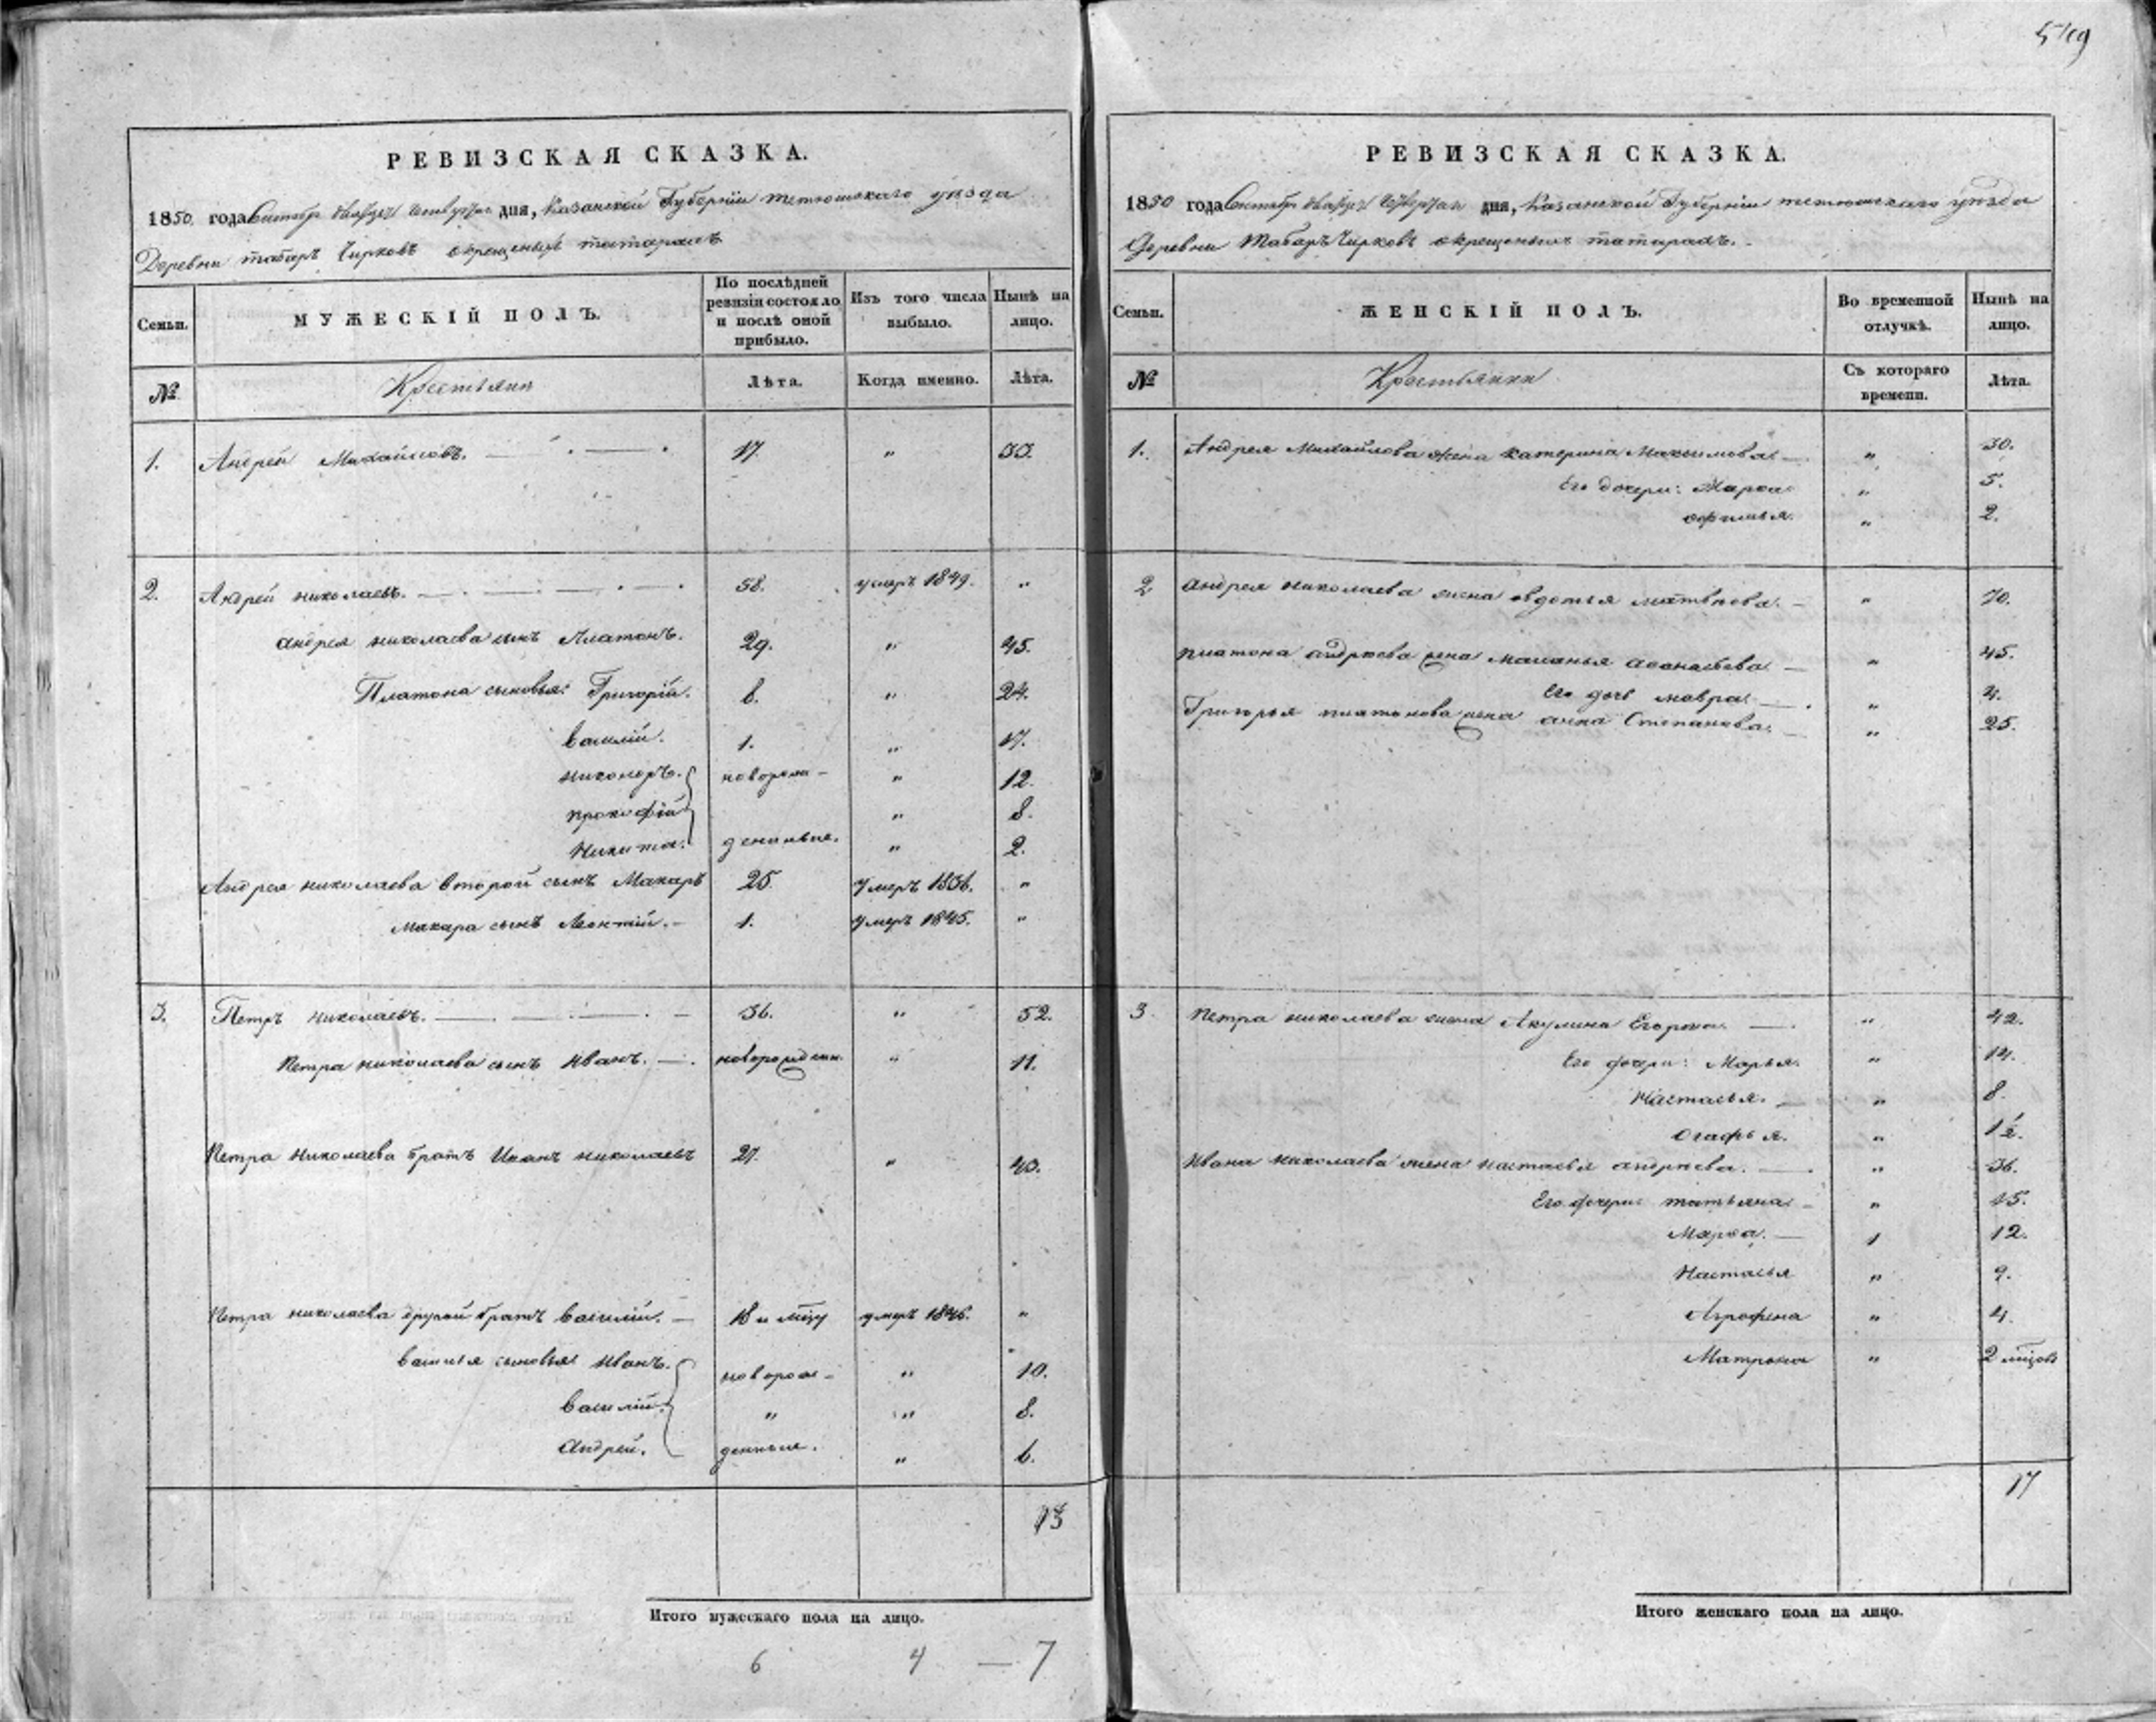 549
РЕВИЗСКАЯ СКАЗКА.
1850 года дня, Казанской Губерніи тетюшскаго уезда
Деревни татаръ Чирковъ окрещеныхъ татарахъ
Семьи. МУЖЕСКІЙ ПОЛЪ. По послѣдней ревизіи состояло и послѣ оной прибыло. Изъ того числа выбыло. Нынѣ на лицо.
№ Крестьяни Лѣта. Когда именно. Лѣта.
1. Андрей Михайловъ. 17. " 33.
2. Андрей николаевъ. 58. умеръ 1849. "
андрея николаева сынъ Платонъ. 29. " 45.
Платона сыновья: Григорій. 8. " 24.
василій. 1. " 17.
никоноръ. новорож- " 12.
прокофій " 8.
Никита. денныя. " 2.
Андрея николаева второй сынъ Макаръ 25. умеръ 1836. "
макара сынъ Леонтій. 1. умеръ 1845. "
3. Петръ николаевъ. 36. " 52.
Петра николаева сынъ иванъ. новорожден. " 11.
Петра Николаева братъ Иванъ николаевъ 27. " 43.
Петра николаева другой братъ василій. 18 и мѣцу умеръ 1846. "
василья сыновья иванъ. новорож- " 10.
василій. " " 8.
андрей. денныя. " 6.
13
Итого мужескаго пола на лицо.
6 4 — 7
РЕВИЗСКАЯ СКАЗКА.
1850 года дня, Казанской Губерніи тетюшскаго уѣзда
Деревни Татаръ Чирковъ окрещеныхъ татарахъ.
Семьи. ЖЕНСКІЙ ПОЛЪ. Во временной отлучкѣ. Нынѣ на лицо.
№ Крестьянки Съ котораго времени. Лѣта.
1. Андрея Михайлова жена катерина Максимова " 30.
Его дочери: Марѳа " 5.
офимья. " 2.
2 андрея николаева жена овдотья матвѣева. " 70.
платона андрѣева жена маланья аѳонасьева " 45.
Его дочь мавра. " 4.
Григорья платонова жена анна Степанова. " 25.
3. Петра николаева жена Акулина Егорова. " 42.
Его дочери: Марья. " 14.
Настасья. " 8.
Огафья. " 1½.
Ивана николаева жена настасья андрѣева. " 36.
Его дочери татьяна " 15.
Марѳа. " 12.
Настасья " 9.
Аграфена " 4.
Матрона " 2 мѣцов
17
Итого женскаго пола на лицо.